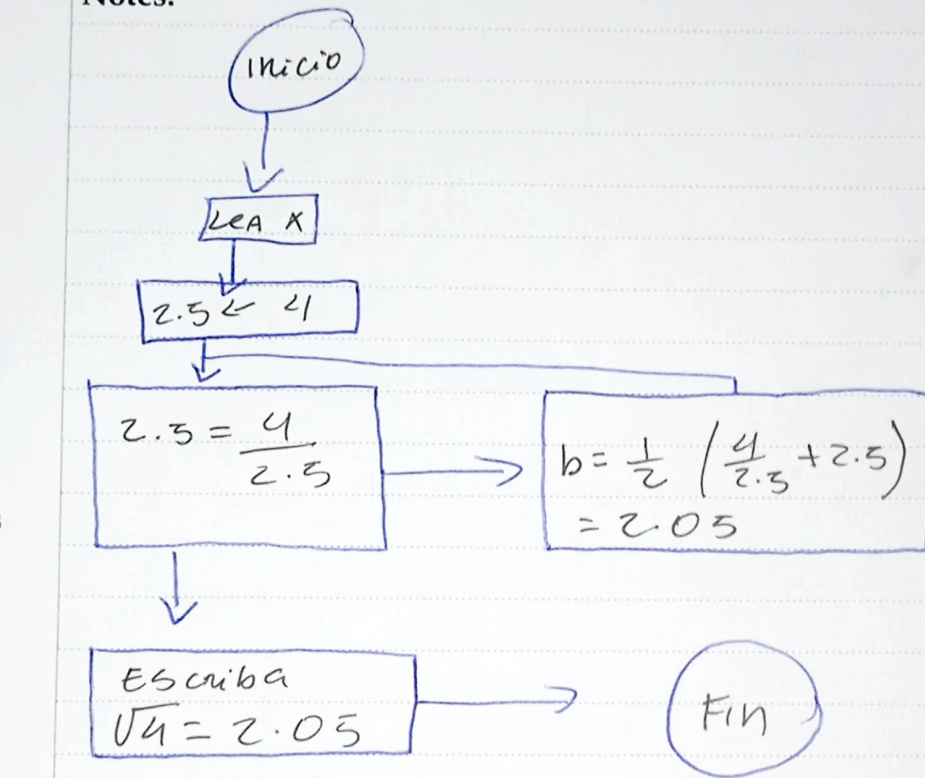 Notes:
Inicio
LeA X
2.5 ← 4
2.5 = 4/2.5
b = 1/2 (4/2.5 + 2.5)
= 2.05
Escriba
√4 = 2.05
Fin